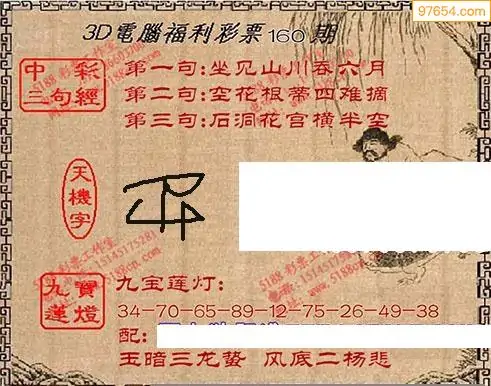 97654.com
3D電腦福利彩票160期
中彩
三句經
第一句:坐见山川吞六月
第二句:空花根蒂四难摘
第三句:石洞花宫横半空
天機字
九寶
蓮燈
九宝莲灯:
34-70-65-89-12-75-26-49-38
配:
玉暗三龙蛰 风底二杨悲